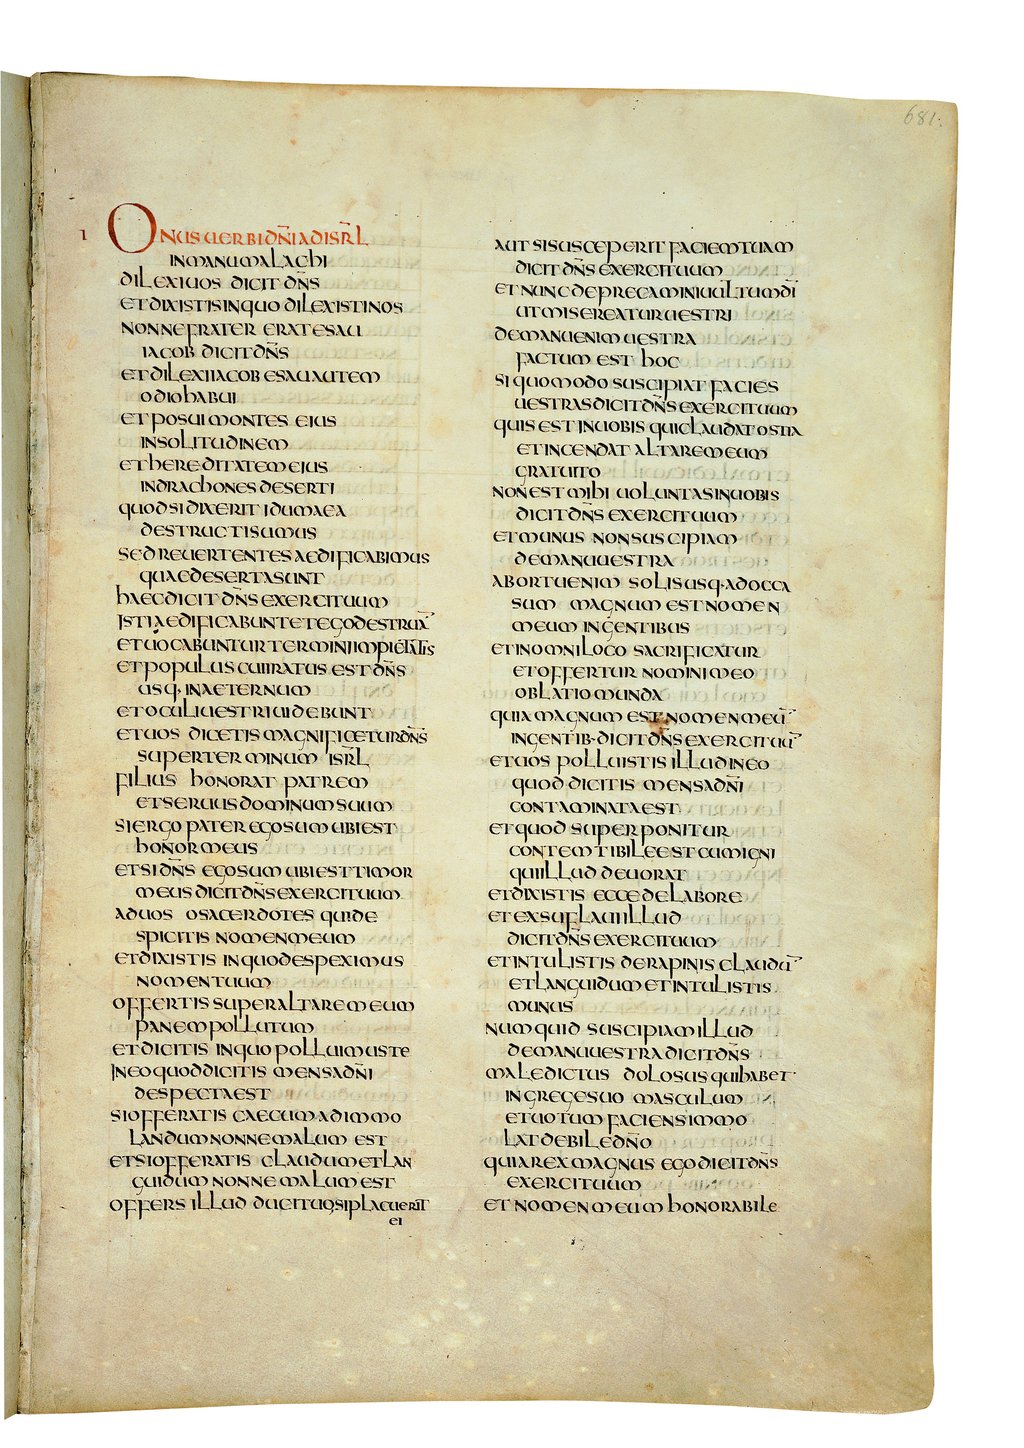 681.
I
ONUS UERBI DN̄I AD ISR̄L
IN MANU MALACHI
DILEXI UOS DICIT DN̄S
ET DIXISTIS IN QUO DILEXISTI NOS
NONNE FRATER ERAT ESAU
IACOB DICIT DN̄S
ET DILEXI IACOB ESAU AUTEM
ODIO HABUI
ET POSUI MONTES EIUS
IN SOLITUDINEM
ET HEREDITATEM EIUS
IN DRACHONES DESERTI
QUOD SI DIXERIT IDUMAEA
DESTRUCTI SUMUS
SED REUERTENTES AEDIFICABIMUS
QUAE DESERTA SUNT
HAEC DICIT DN̄S EXERCITUUM
ISTI AEDIFICABUNT ET EGO DESTRUA̅
ET UOCABUNTUR TERMINI IMPIETATIS
ET POPULUS CUI IRATUS EST DN̄S
USQ· IN AETERNUM
ET OCULI UESTRI UIDEBUNT
ET UOS DICETIS MAGNIFICETUR DN̄S
SUPER TERMINUM ISR̄L
FILIUS HONORAT PATREM
ET SERUUS DOMINUM SUUM
SI ERGO PATER EGO SUM UBI EST
HONOR MEUS
ET SI DN̄S EGO SUM UBI EST TIMOR
MEUS DICIT DN̄S EXERCITUUM
AD UOS O SACERDOTES QUI DE
SPICITIS NOMEN MEUM
ET DIXISTIS IN QUO DESPEXIMUS
NOMEN TUUM
OFFERTIS SUPER ALTARE MEUM
PANEM POLLUTUM
ET DICITIS IN QUO POLLUIMUS TE
IN EO QUOD DICITIS MENSA DN̄I
DESPECTA EST
SI OFFERATIS CAECUM AD IMMO
LANDUM NONNE MALUM EST
ET SI OFFERATIS CLAUDUM ET LAN
GUIDUM NONNE MALUM EST
OFFERS ILLUD DUCI TUO SI PLACUERIT
EI
AUT SI SUSCEPERIT FACIEM TUAM
DICIT DN̄S EXERCITUUM
ET NUNC DEPRECAMINI UULTUM DĪ
UT MISEREATUR UESTRI
DE MANU ENIM UESTRA
FACTUM EST HOC
SI QUOMODO SUSCIPIAT FACIES
UESTRAS DICIT DN̄S EXERCITUUM
QUIS EST IN UOBIS QUI CLAUDAT OSTIA
ET INCENDAT ALTARE MEUM
GRATUITO
NON EST MIHI UOLUNTAS IN UOBIS
DICIT DN̄S EXERCITUUM
ET MUNUS NON SUSCIPIAM
DE MANU UESTRA
AB ORTU ENIM SOLIS USQ· AD OCCA
SUM MAGNUM EST NOMEN
MEUM IN GENTIBUS
ET IN OMNI LOCO SACRIFICATUR
ET OFFERTUR NOMINI MEO
OBLATIO MUNDA
QUIA MAGNUM EST NOMEN MEU̅
IN GENTIB· DICIT DN̄S EXERCITUU̅
ET UOS POLLUISTIS ILLUD IN EO
QUOD DICITIS MENSA DN̄I
CONTAMINATA EST
ET QUOD SUPERPONITUR
CONTEMTIBILE EST CUM IGNI
QUI ILLUD DEUORAT
ET DIXISTIS ECCE DE LABORE
ET EXSUFLAUI ILLUD
DICIT DN̄S EXERCITUUM
ET INTULISTIS DE RAPINIS CLAUDU̅
ET LANGUIDUM ET INTULISTIS
MUNUS
NUMQUID SUSCIPIAM ILLUD
DE MANU UESTRA DICIT DN̄S
MALEDICTUS DOLOSUS QUI HABET
IN GREGE SUO MASCULUM
ET UOTUM FACIENS IMMO
LAT DEBILE DN̄O
QUIA REX MAGNUS EGO DICIT DN̄S
EXERCITUUM
ET NOMEN MEUM HONORABILE